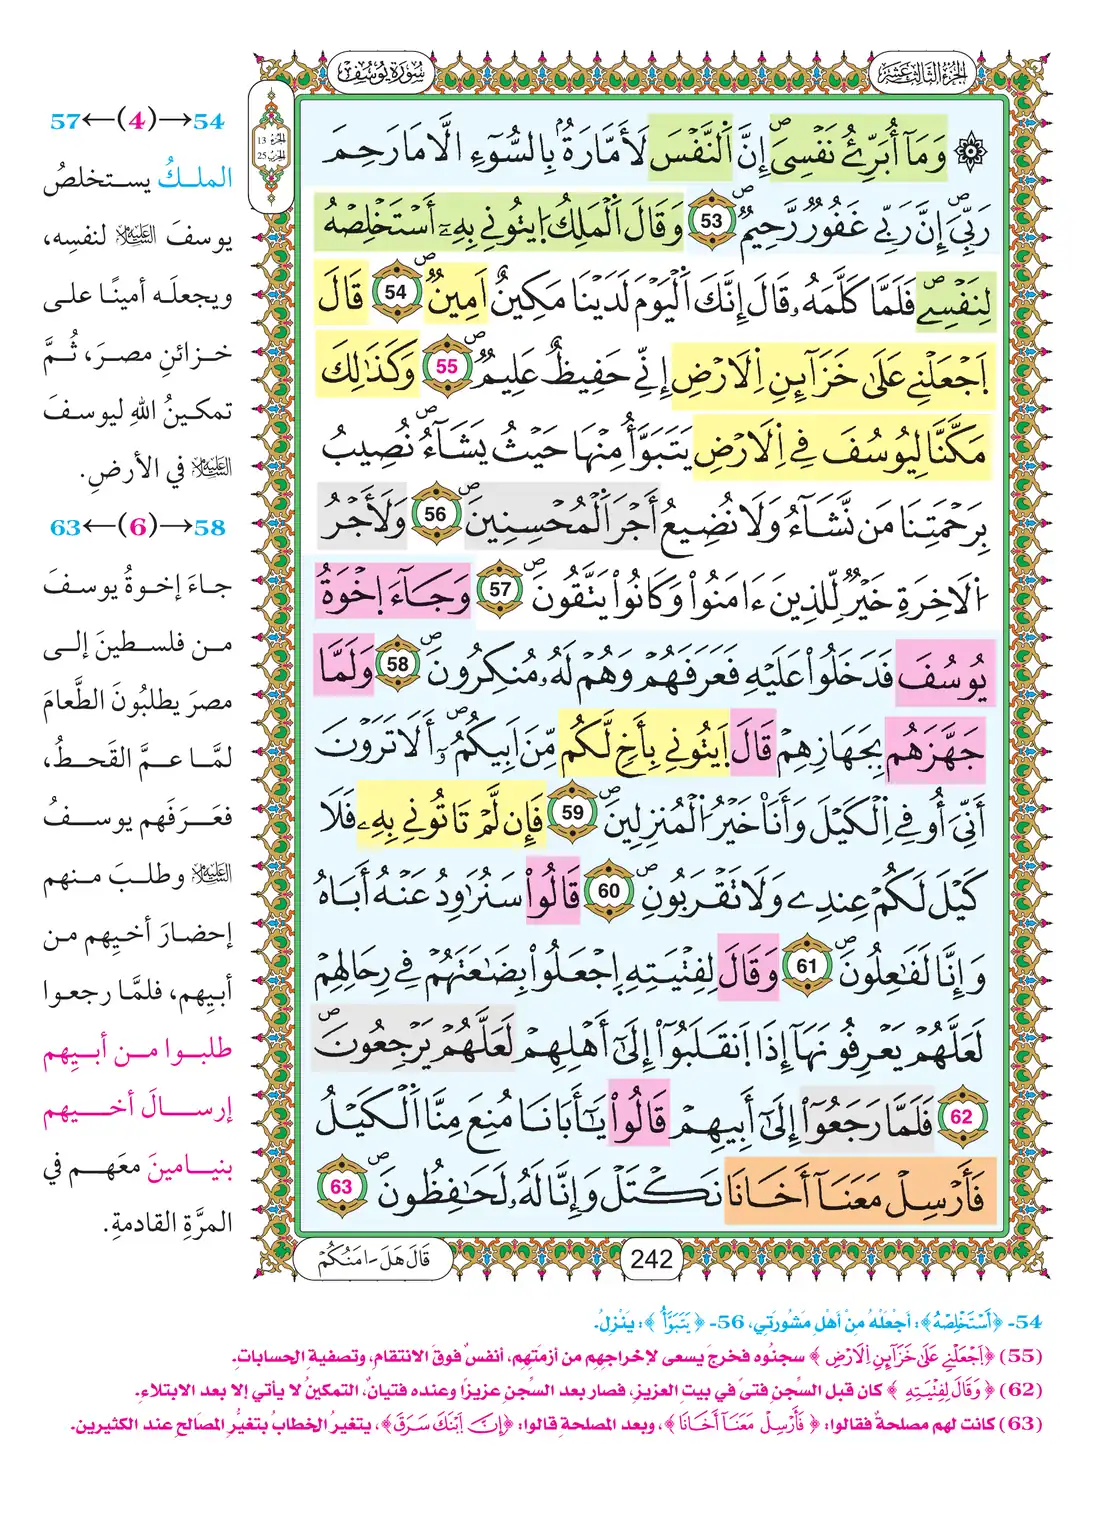 الجزء الثالث عشر
سورة يوسف
الجزء 13
الحزب 25
۞ وَمَآ أُبَرِّئُ نَفْسِيَ إِنَّ اَ۬لنَّفْسَ لَأَمَّارَةُۢ بِالسُّوٓءِ الَّا مَا رَحِمَ
رَبِّيَ إِنَّ رَبِّي غَفُورٌ رَّحِيمٌ 53 وَقَالَ اَ۬لْمَلِكُ اُ۪يتُونِي بِهِۦٓ أَسْتَخْلِصْهُ
لِنَفْسِي فَلَمَّا كَلَّمَهُۥ قَالَ إِنَّكَ اَ۬لْيَوْمَ لَدَيْنَا مَكِينٌ اَمِينٌ 54 قَالَ
اَ۪جْعَلْنِي عَلَىٰ خَزَآئِنِ اِ۬لَارْضِ إِنِّي حَفِيظٌ عَلِيمٌ 55 وَكَذَٰلِكَ
مَكَّنَّا لِيُوسُفَ فِي اِ۬لَارْضِ يَتَبَوَّأُ مِنْهَا حَيْثُ يَشَآءُ نُصِيبُ
بِرَحْمَتِنَا مَن نَّشَآءُ وَلَا نُضِيعُ أَجْرَ اَ۬لْمُحْسِنِينَ 56 وَلَأَجْرُ
اُ۬لَاخِرَةِ خَيْرٌ لِّلذِينَ ءَامَنُواْ وَكَانُواْ يَتَّقُونَ 57 وَجَآءَ اِخْوَةُ
يُوسُفَ فَدَخَلُواْ عَلَيْهِ فَعَرَفَهُمْ وَهُمْ لَهُۥ مُنكِرُونَ 58 وَلَمَّا
جَهَّزَهُم بِجَهَازِهِمْ قَالَ اَ۪يتُونِي بِأَخٖ لَّكُم مِّنَ اَبِيكُمُۥٓ أَلَا تَرَوْنَ
أَنِّيَ أُوفِي اِ۬لْكَيْلَ وَأَنَا۠ خَيْرُ اُ۬لْمُنزِلِينَ 59 فَإِن لَّمْ تَاتُونِي بِهِۦ فَلَا
كَيْلَ لَكُمْ عِندِي وَلَا تَقْرَبُونِ 60 قَالُواْ سَنُرَٰوِدُ عَنْهُ أَبَاهُ
وَإِنَّا لَفَٰعِلُونَ 61 وَقَالَ لِفِتْيَتِهِ اِ۪جْعَلُواْ بِضَٰعَتَهُمْ فِي رِحَالِهِمْ
لَعَلَّهُمْ يَعْرِفُونَهَآ إِذَا اَ۪نقَلَبُوٓاْ إِلَىٰٓ أَهْلِهِمْ لَعَلَّهُمْ يَرْجِعُونَ
62 فَلَمَّا رَجَعُوٓاْ إِلَىٰٓ أَبِيهِمْ قَالُواْ يَٰٓأَبَانَا مُنِعَ مِنَّا اَ۬لْكَيْلُ
فَأَرْسِلْ مَعَنَآ أَخَانَا نَكْتَلْ وَإِنَّا لَهُۥ لَحَٰفِظُونَ 63
قَالَ هَلَ ـ امَنُكُمْ
242
54→(4)←57
الملكُ يستخلصُ
يوسفَ عليه السلام لنفسِه،
ويجعلَه أمينًا على
خزائنِ مصرَ، ثُمَّ
تمكينُ اللهِ ليوسفَ
عليه السلام في الأرضِ.
58→(6)←63
جاءَ إخوةُ يوسفَ
من فلسطينَ إلى
مصرَ يطلبُونَ الطَّعامَ
لمَّا عمَّ القَحطُ،
فعَرَفَهم يوسفُ
عليه السلام وطلبَ منهم
إحضارَ أخيهم من
أبيهم، فلمَّا رجعوا
طلبوا من أبيهم
إرسالَ أخيهم
بنيامينَ معَهم في
المرَّةِ القادمةِ.
54- ﴿أَسْتَخْلِصْهُ﴾: أجعلْهُ مِنْ أهْلِ مَشُورَتي، 56- ﴿يَتَبَوَّأُ﴾: يَنْزِلُ.
(55) ﴿اَجْعَلْنِي عَلَىٰ خَزَآئِنِ اِلَارْضِ﴾ سجنُوه فخرجَ يسعى لإخراجِهم من أزمتِهم، أنفسٌ فوقَ الانتقامِ، وتصفيةِ الحسابات.
(62) ﴿وَقَالَ لِفِتْيَتِهِ﴾ كان قبل السِّجنِ فتىً في بيتِ العزيزِ، فصار بعد السِّجنِ عزيزًا وعنده فتيانٌ، التمكينُ لا يأتي إلا بعد الابتلاءِ.
(63) كانت لهم مصلحةٌ فقالوا: ﴿فَأَرْسِلْ مَعَنَآ أَخَانَا﴾، وبعد المصلحة قالوا: ﴿إِنَّ اَبْنَكَ سَرَقَ﴾، يتغيرُ الخطابُ بتغيُّرِ المصَالحِ عند الكثيرين.